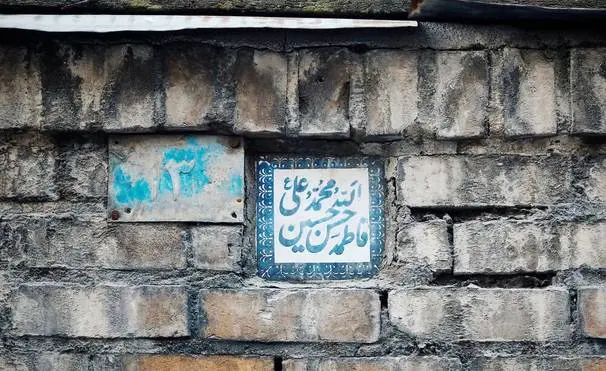 ۳
الله محمد علی
فاطمه حسن حسین